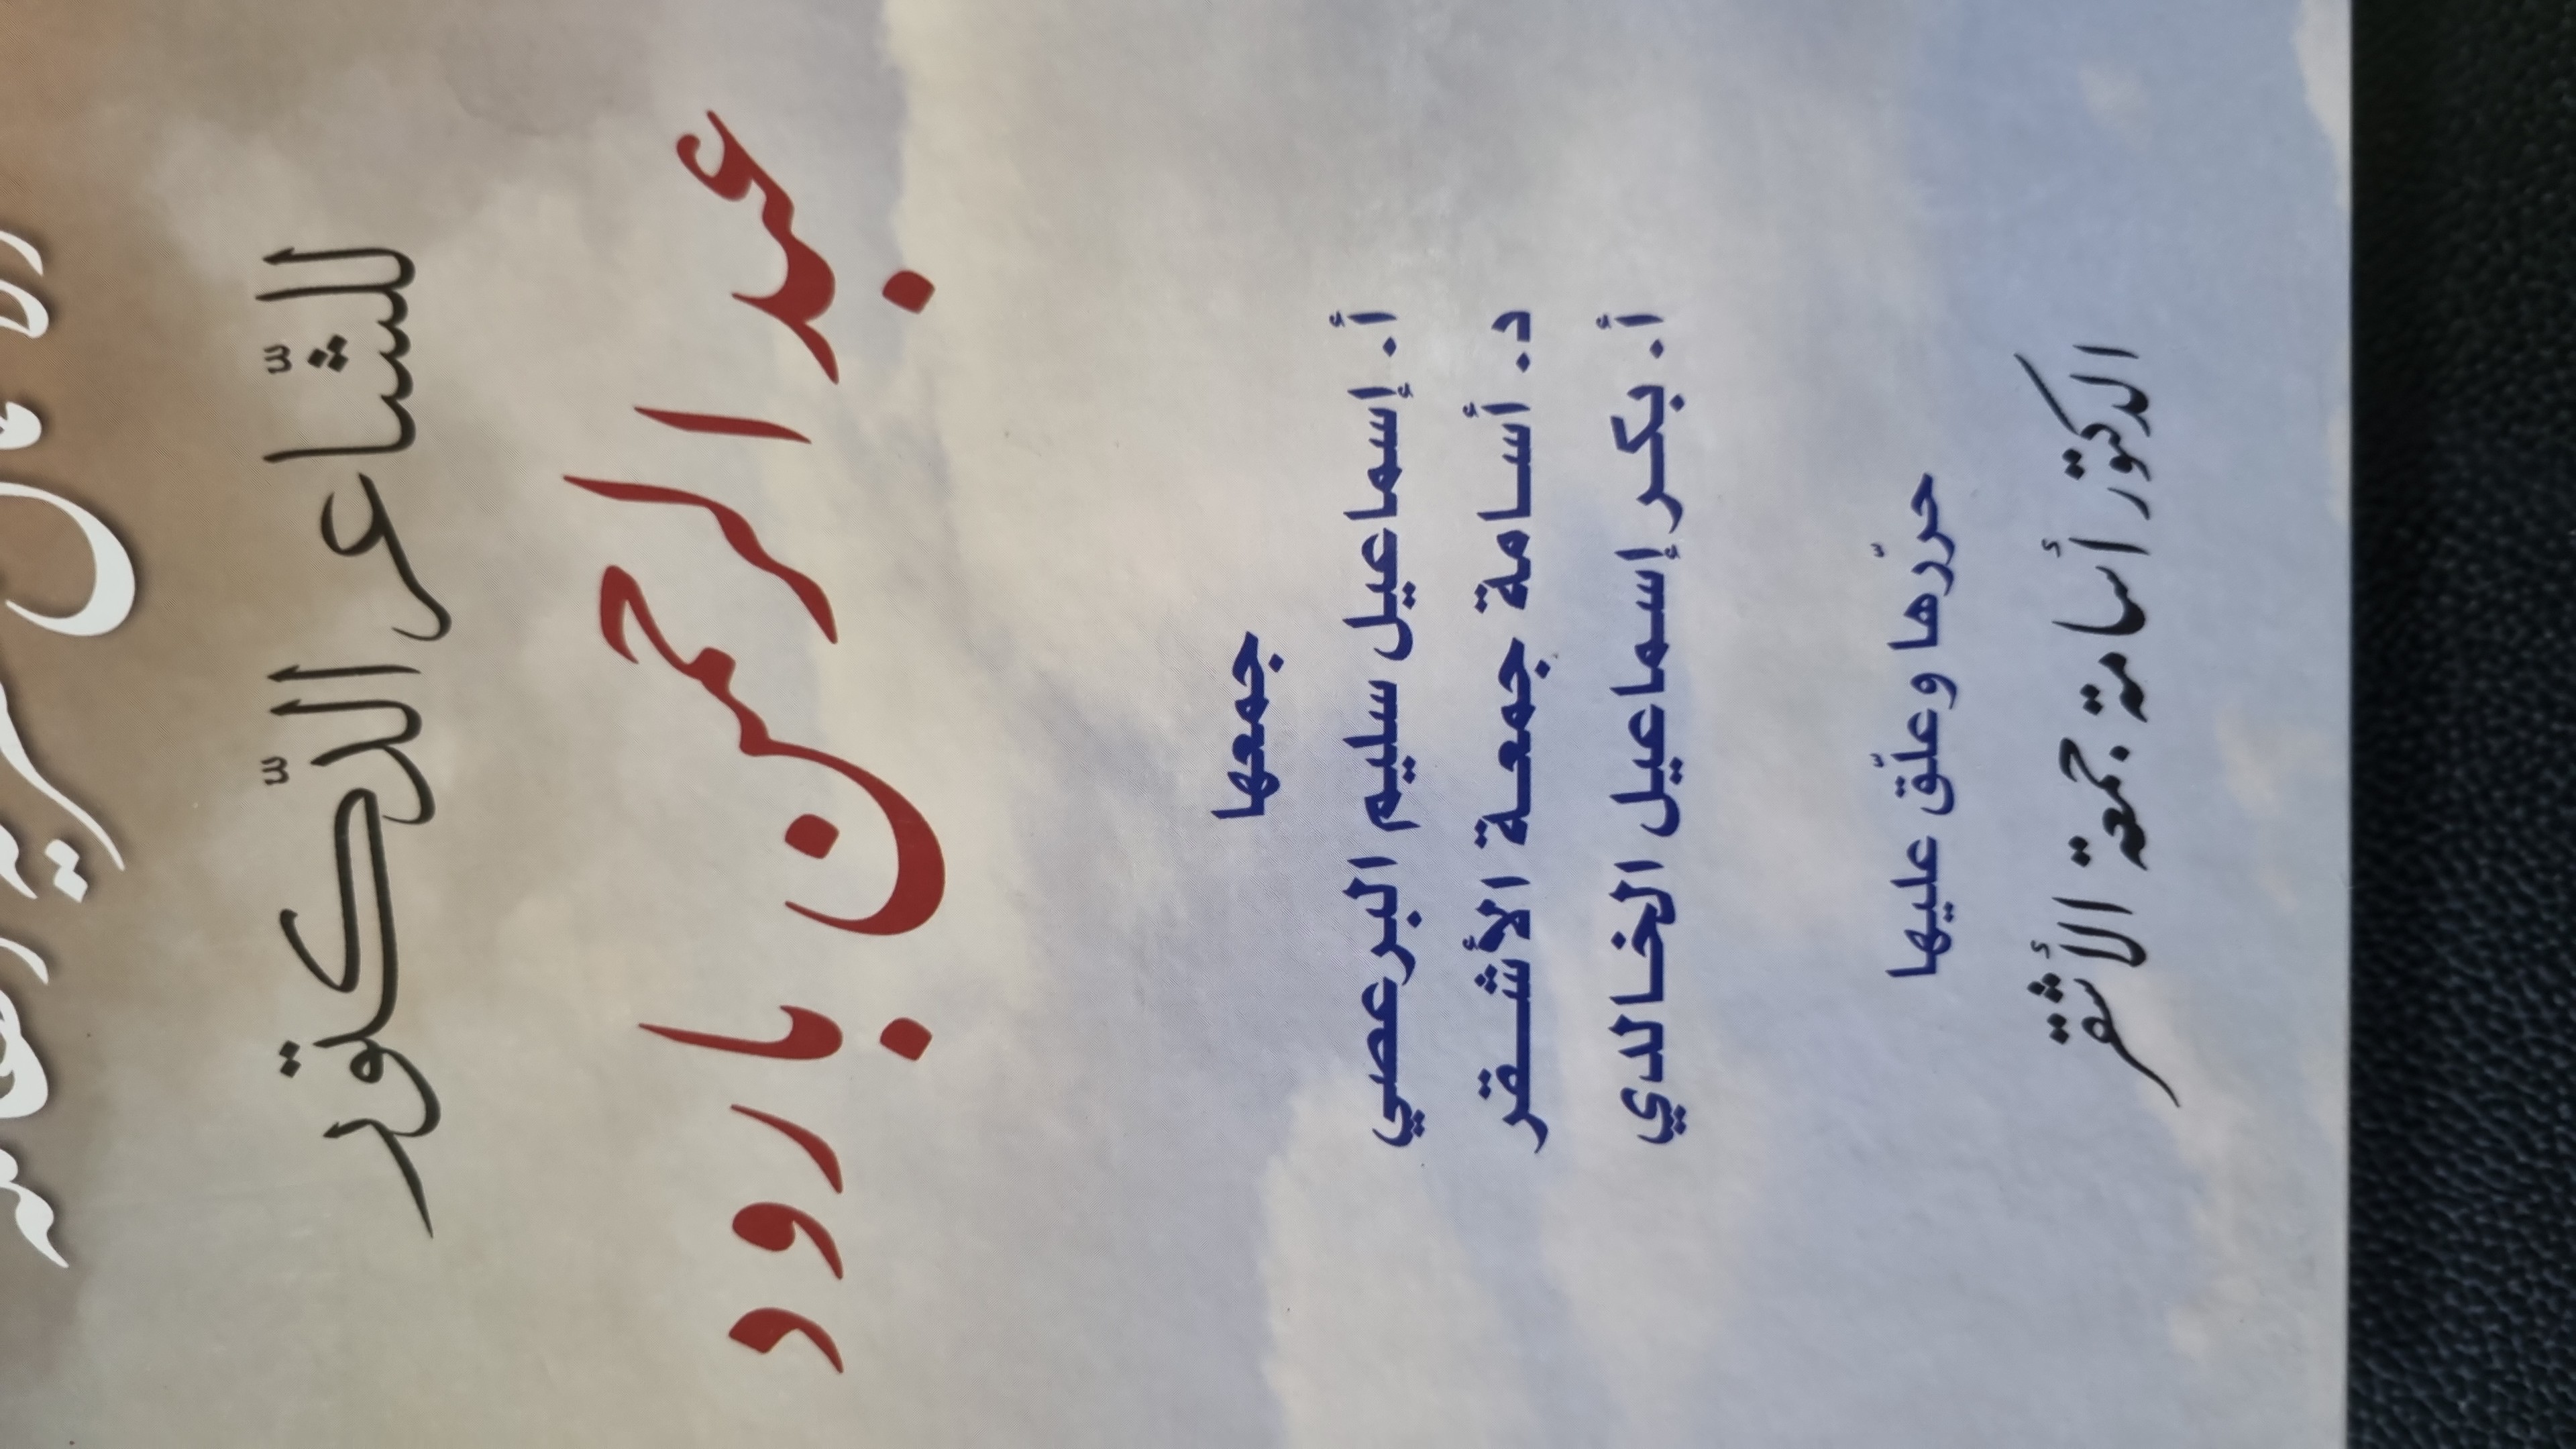 للشّاعر الدّكتور
عبد الرحمن بارود
جمعها
أ. إسماعيل سليم البرعصي
د. أسامة جمعة الأشقر
أ. بكر إسماعيل الخالدي
حرّرها وعلّق عليها
الدكتور أسامة جمعة الأشقر